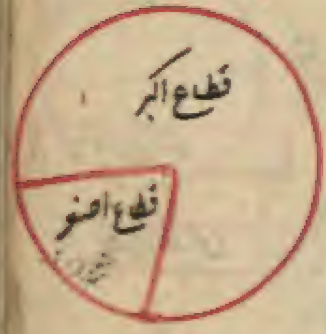 قطاع اکبر
قطاع اصغر